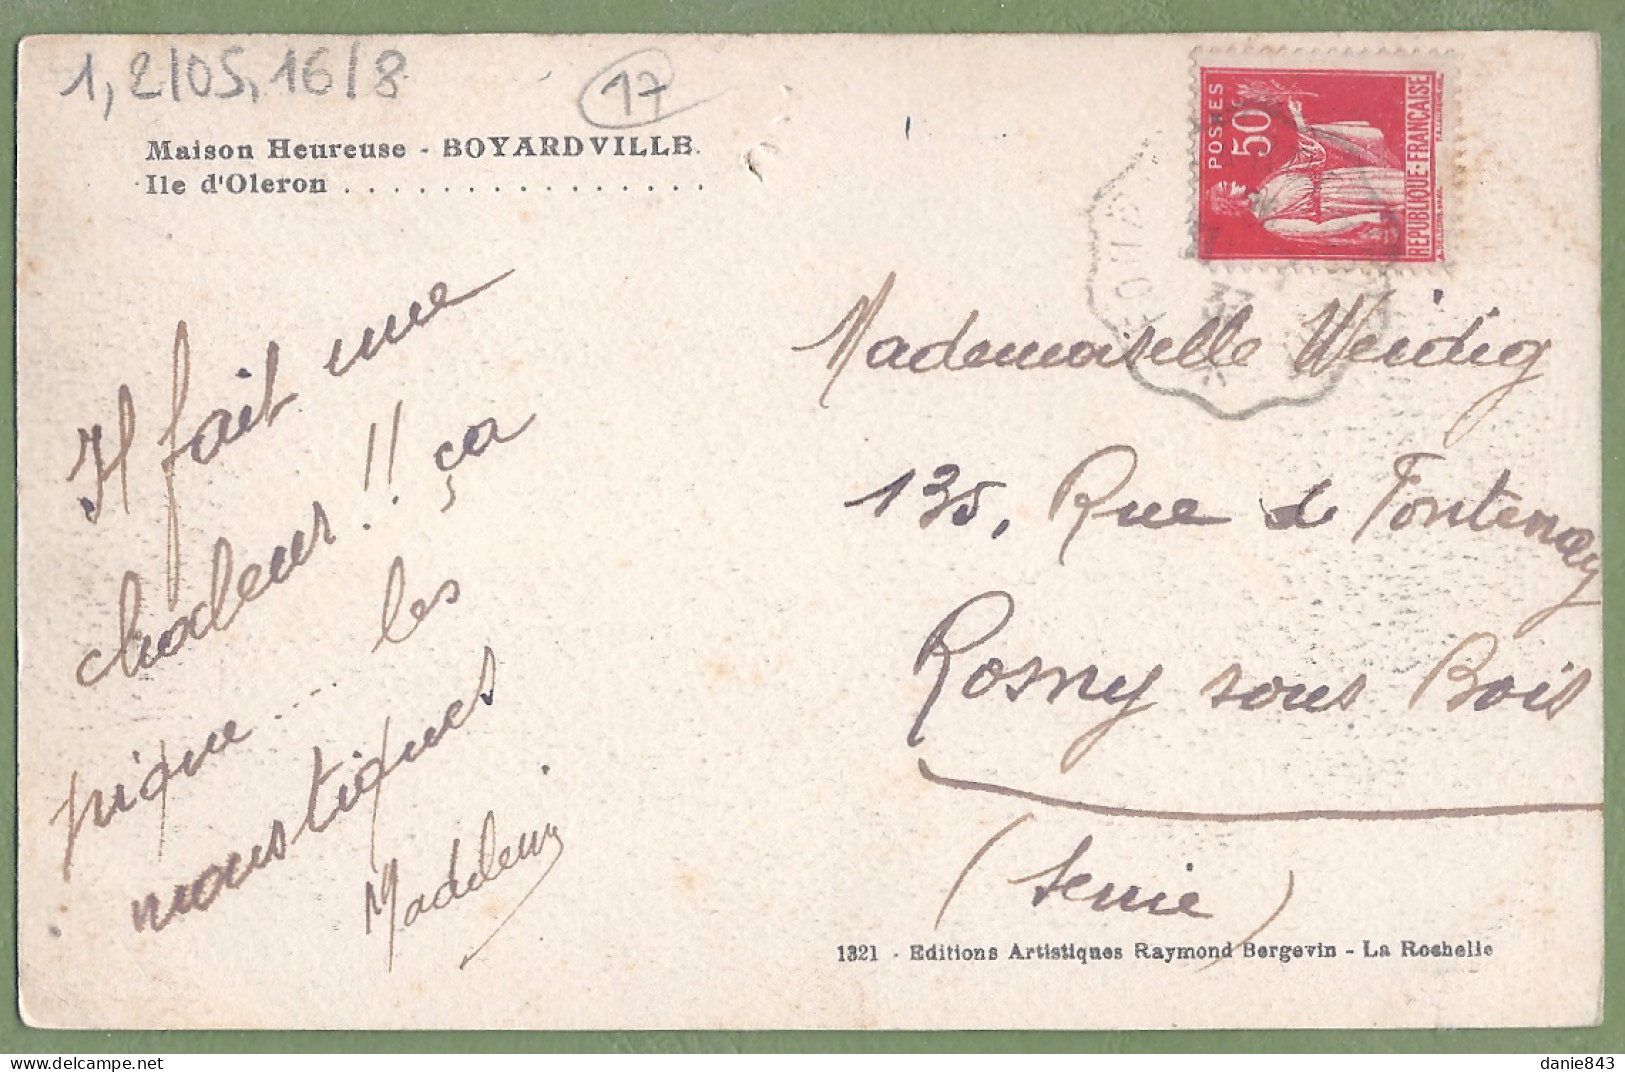 1, 2/05, 16/8
17
Maison Heureuse - BOYARDVILLE.
Ile d'Oleron . . . . . . . . . . . . . . . .
POSTES
50c
REPUBLIQUE-FRANCAISE
37
Il fait une
chaleur !! ça
pique .... les
moustiques
Madeleine
Mademoiselle Weidig
135, Rue de Fontenay
Rosny sous Bois
(Seine)
1321 - Editions Artistiques Raymond Bergevin - La Rochelle
danie843